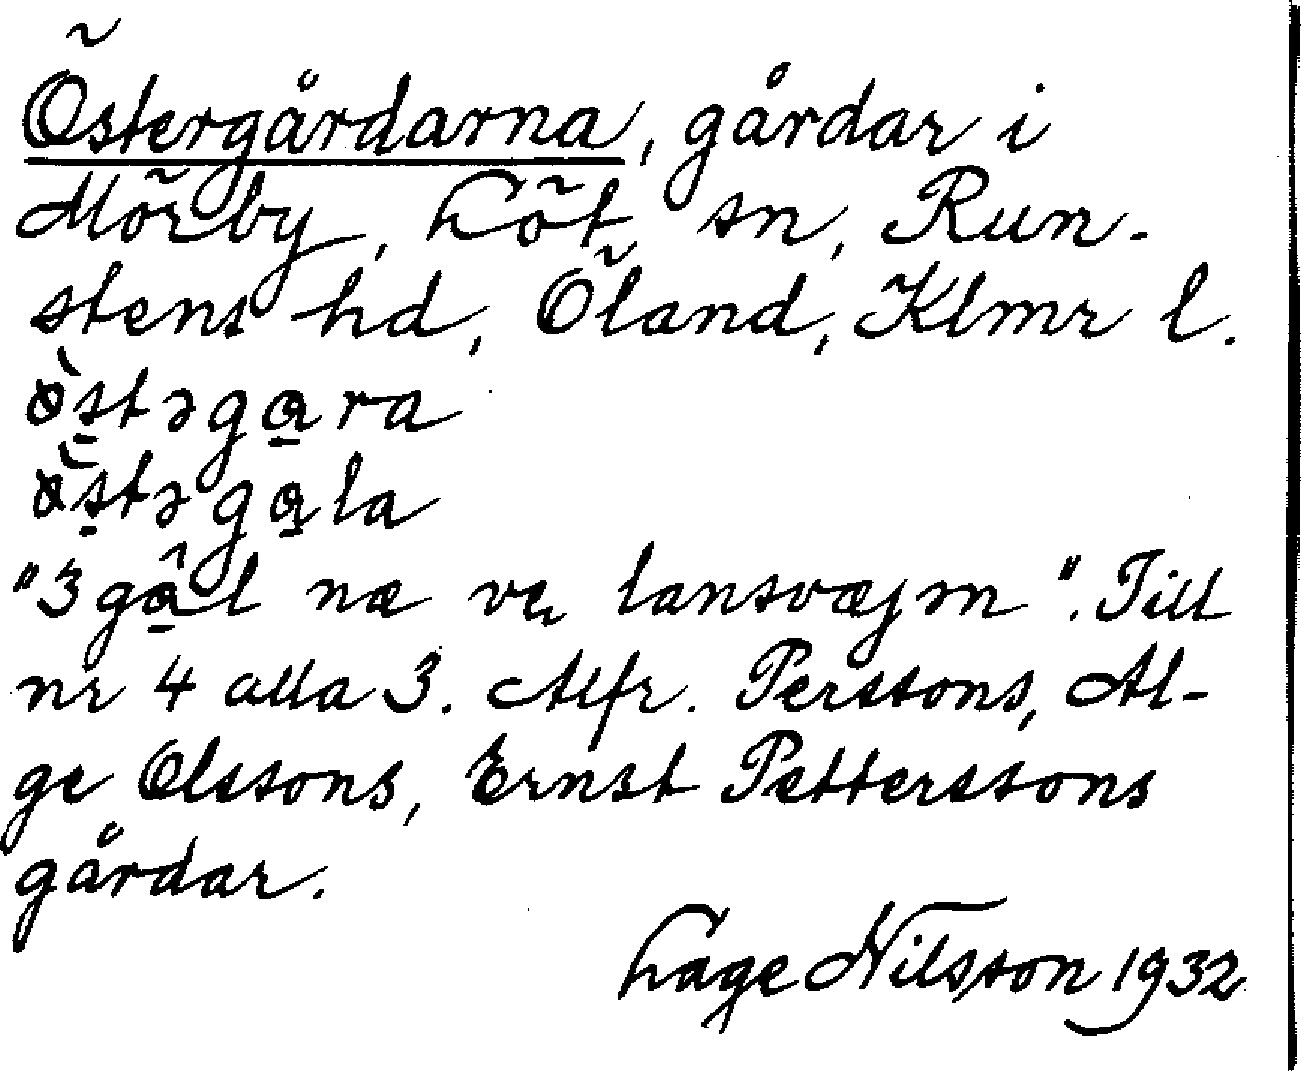 Östergårdarna, gårdar i
Mörby, Löt sn, Run-
stens hd, Öland, Klmr l.
ø̀s̱təgα̱ra
ø̀s̱təgα̱la
"3 gα̱̂l næ vɶ lansvæjm". Till
nr 4 alla 3. Alfr. Perssons, Al-
ge Olssons, Ernst Petterssons
gårdar.
Lage Nilsson 1932